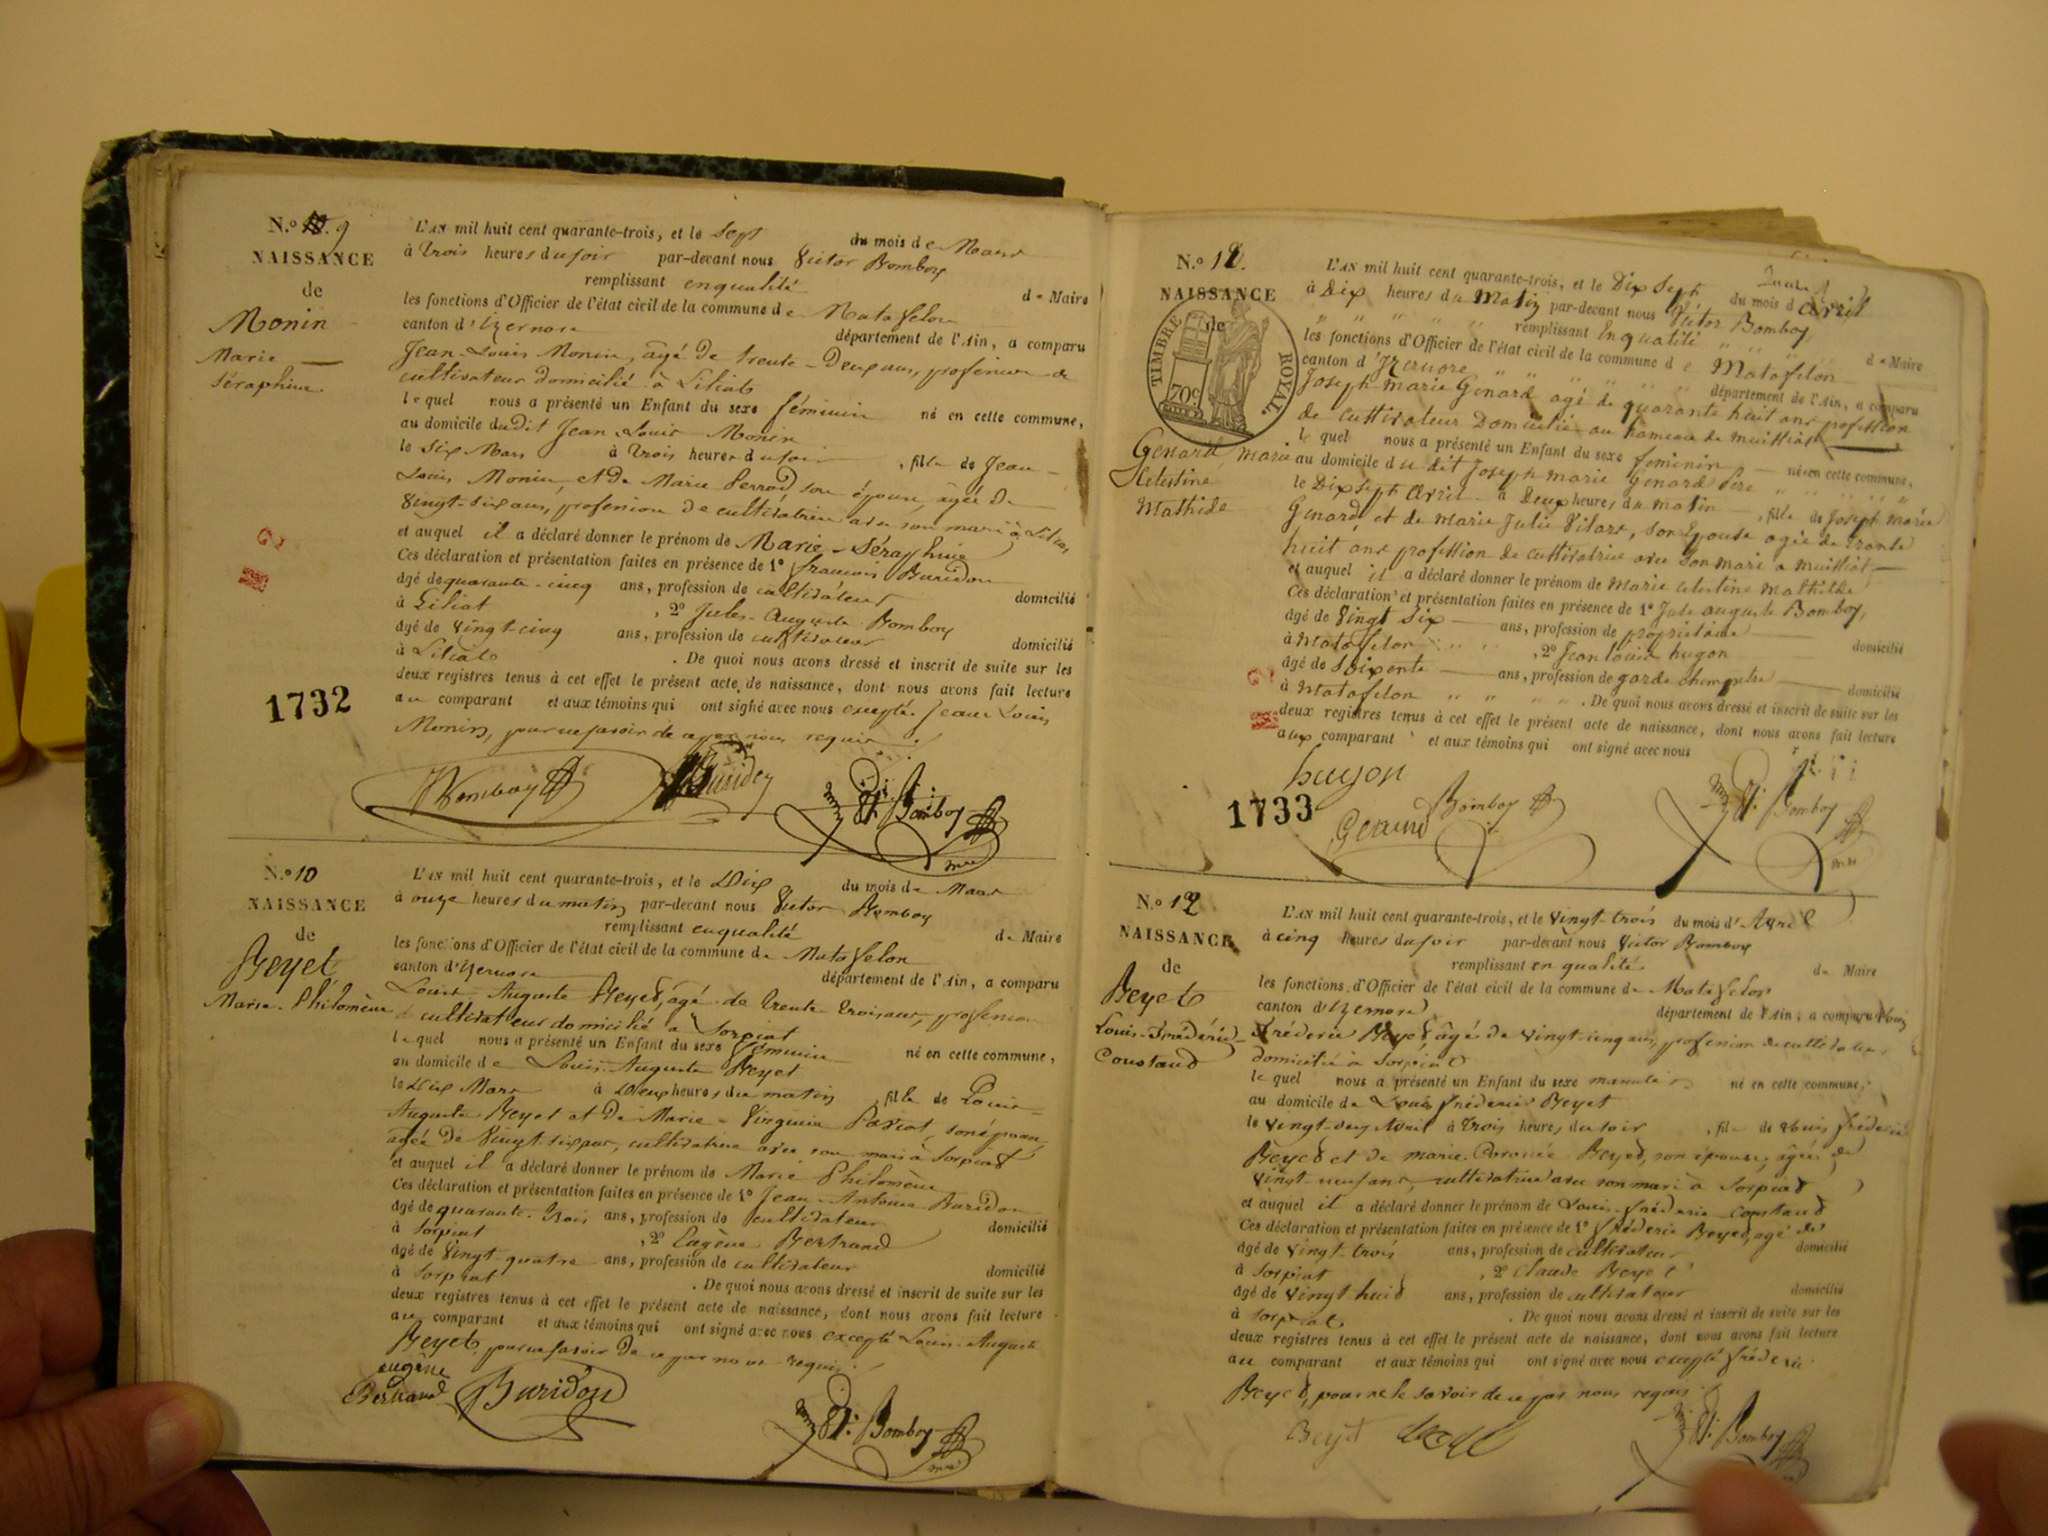 N.° 9
NAISSANCE
de
Monin
Marie
Séraphine
L'AN mil huit cent quarante-trois, et le Sept du mois de Mars
à trois heures du soir par-devant nous Victor Bomboy
remplissant en qualité de Maire
les fonctions d'Officier de l'état civil de la commune de Matafelon
canton d'Izernore département de l'Ain, a comparu
Jean-Louis Monin, âgé de trente-Deux ans, profession de
cultivateur domicilié à Liliat
lequel nous a présenté un Enfant du sexe féminin né en cette commune,
au domicile dudit Jean Louis Monin
le Six Mars à trois heures du soir, fille de Jean-
Louis Monin, et de Marie Perrod son épouse, âgée de
Vingt-six ans, profession de cultivatrice avec son mari à Liliat
et auquel il a déclaré donner le prénom de Marie-Séraphine
Ces déclaration et présentation faites en présence de 1° François Buridon
âgé de quarante-cinq ans, profession de cultivateur domicilié
à Liliat, 2° Jules-Auguste Bomboy
âgé de Vingt-cinq ans, profession de cultivateur domicilié
à Liliat. De quoi nous avons dressé et inscrit de suite sur les
deux registres tenus à cet effet le présent acte de naissance, dont nous avons fait lecture
au comparant et aux témoins qui ont signé avec nous excepté Jean Louis
Monin, pour ne savoir de ce par nous requis.
1732
Bomboy Buridon Vr. Bomboy
mre
N.° 10
NAISSANCE
de
Beyet
Marie-Philomène
L'AN mil huit cent quarante-trois, et le Dix du mois de Mars
à onze heures du matin par-devant nous Victor Bomboy
remplissant en qualité de Maire
les fonctions d'Officier de l'état civil de la commune de Matafelon
canton d'Izernore département de l'Ain, a comparu
Louis-Auguste Beyet, âgé de trente trois ans, profession
de cultivateur domicilié à Corpiat
lequel nous a présenté un Enfant du sexe féminin né en cette commune,
au domicile de Louis-Auguste Beyet
le Dix Mars à Deux heures du matin, fille de Louis-
Auguste Beyet et de Marie-Virginie son épouse,
âgée de Vingt six ans, cultivatrice avec son mari à Corpiat
et auquel il a déclaré donner le prénom de Marie Philomène
Ces déclaration et présentation faites en présence de 1° Jean-Antoine Buridon
âgé de quarante-trois ans, profession de cultivateur domicilié
à Corpiat, 2° Eugène Bertrand
âgé de Vingt-quatre ans, profession de cultivateur domicilié
à Corpiat. De quoi nous avons dressé et inscrit de suite sur les
deux registres tenus à cet effet le présent acte de naissance, dont nous avons fait lecture
au comparant et aux témoins qui ont signé avec nous excepté Louis-Auguste
Beyet, pour ne savoir de ce par nous requis.
eugène
Bertrand Buridon Vr. Bomboy
mre
N.° 11.
NAISSANCE
de
TIMBRE ROYAL
70c
Genard marie
Celestine
Mathilde
L'AN mil huit cent quarante-trois, et le Dix Sept du mois d'Avril
à Dix heures du Matin par-devant nous Victor Bomboy
remplissant En qualité de Maire
les fonctions d'Officier de l'état civil de la commune de Matafelon
canton d'Izernore département de l'Ain, a comparu
Joseph Marie Genard âgé de quarante huit ans profession
de cultivateur Domicilié au hameau de muilliat
lequel nous a présenté un Enfant du sexe feminin né en cette commune,
au domicile du dit Joseph marie Genard père
le Dix Sept Avril à Deux heures du matin, fille de Joseph Marie
Genard et de Marie Julie Vilars, Son Epouse agée de trente
huit ans profession de cultivatrice avec son mari a muilliat,
et auquel il a déclaré donner le prénom de marie celestine mathilde
Ces déclaration et présentation faites en présence de 1° Jule auguste Bomboy,
âgé de Vingt Six ans, profession de propriétaire domicilié
à Matafelon, 2° Jean louis hugon
âgé de Soixente ans, profession de garde champetre domicilié
à Matafelon. De quoi nous avons dressé et inscrit de suite sur les
deux registres tenus à cet effet le présent acte de naissance, dont nous avons fait lecture
aux comparant et aux témoins qui ont signé avec nous
hugon
1733
Genard Bomboy Vr. Bomboy
mre
N.° 12
NAISSANCE
de
Beyet
Louis-Frédéric-
Constand
L'AN mil huit cent quarante-trois, et le Vingt-trois du mois d'Avril
à cinq heures du soir par-devant nous Victor Bomboy
remplissant en qualité de Maire
les fonctions d'Officier de l'état civil de la commune de Matafelon
canton d'Izernore département de l'Ain, a comparu Louis
Fréderic Beyet, âgé de vingt-cinq ans, profession de cultivateur
domicilié à Corpiat
lequel nous a présenté un Enfant du sexe masculin né en cette commune,
au domicile de Louis fréderic Beyet
le Vingt-deux Avril à trois heures du soir, fils de Louis fréderic
Beyet et de marie Beyet, son épouse, âgée de
Vingt-neuf ans, cultivatrice avec son mari à Corpiat
et auquel il a déclaré donner le prénom de Louis-fréderic-constand
Ces déclaration et présentation faites en présence de 1° fréderic Beyet, agé de
âgé de vingt-trois ans, profession de cultivateur domicilié
à Corpiat, 2° Claude Beyet
âgé de Vingt huit ans, profession de cultivateur domicilié
à Corpiat. De quoi nous avons dressé et inscrit de suite sur les
deux registres tenus à cet effet le présent acte de naissance, dont nous avons fait lecture
au comparant et aux témoins qui ont signé avec nous excepté fréderic
Beyet, pour ne le savoir de ce par nous requis
Beyet Vr. Bomboy